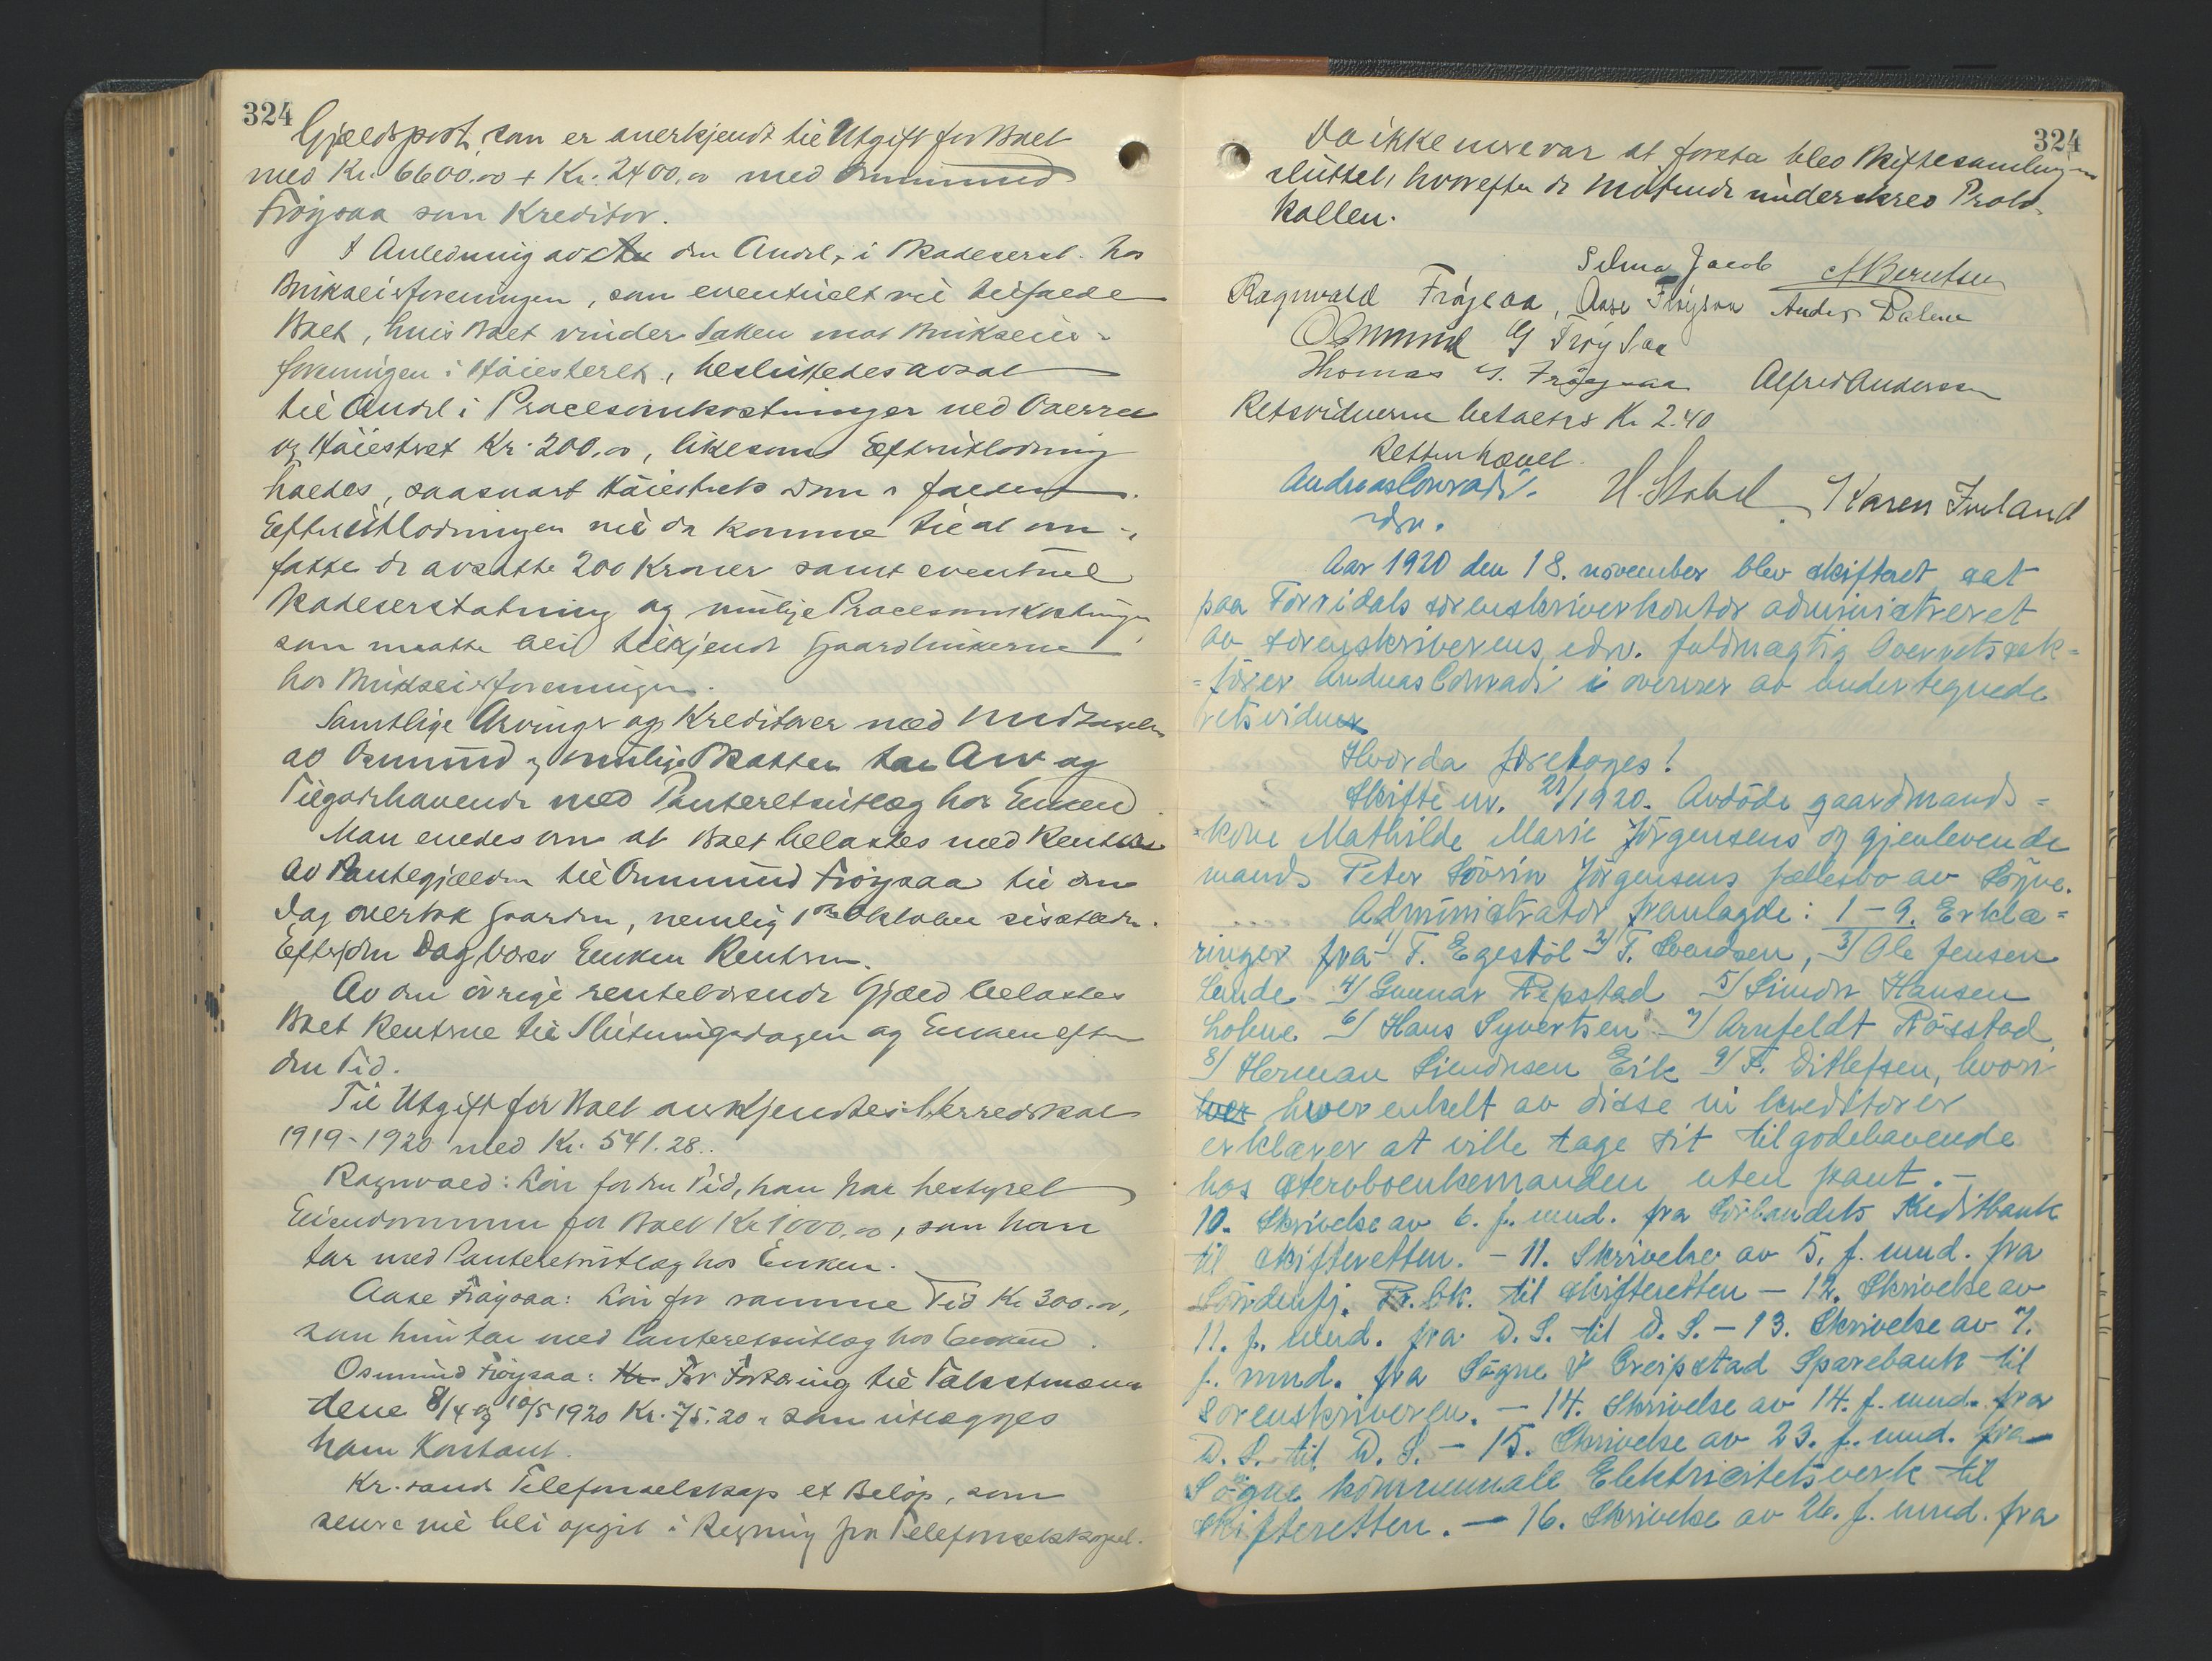 324
Gjældspost, som er anerkjendt til Utgift for Boet
med Kr. 6600.00 + Kr. 2400.00 med Osmund
Frøysaa som Kreditor.
I Anledning av den Andel, i Skadeserst. hos
Brukseierforeningen, som eventuelt vil tilfalde
Boet, hvis Boet vinder Saken mot Brukseier-
foreningen i Høiesteret, besluttedes avsat
til Andel i Procesomkostninger ved Overret
og Høiesteret Kr. 200.00, likesom Efterutlodning
holdes, saasnart Høiesterets Dom er faldt.
Efterutlodningen vil da komme til at om-
fatte de avsatte 200 Kroner samt eventuel
Skadeserstatning og mulige Procesomkostninger,
som maatte bli tilkjendt Gaardbrukerne
hos Brukseierforeningen.
Samtlige Arvinger og Kreditorer med Undtagelse
av Osmund og mulige Skatter tar Arv og
Tilgodehavende med Panteretsutlæg hos Enken.
Man enedes om at Boet belastes med Renterne
av Pantegjælden til Osmund Frøysaa til den
Dag overtok Gaarden, nemlig 1ste Oktober sisstleden.
Efter den Dag bærer Enken Renten.
Av den øvrige rentebærende Gjæld belastes
Boet Renterne til Slutningsdagen og Enken efter
den Tid.
Til Utgift for Boet anerkjendtes: Herredskat
1919-1920 med Kr. 541.28.
Ragnvald: Løn for den Tid, han har bestyret
Eiendommen for Boet Kr 1000.00, som han
tar med Panteretsutlæg hos Enken.
Aase Frøysaa: Løn for samme Tid Kr 300.00,
som hun tar med Panteretsutlæg hos Enken.
Osmund Frøysaa: Kr For Fortæring til Takstmæn-
dene 8/4 og 10/5 1920 Kr. 75.20, som utlægges
ham Kontant.
Kr.sand Telefonselskap et Beløp, som
senere vil bli opgit i Regning fra Telefonselskapet.
324
Da ikke mere var at foreta blev Skiftesamlingen
sluttet, hvorefter de Møtende underskrev Proto-
kollen.
Selma Jacob A Berntsen
Ragnvald Frøysaa, Aase Frøysaa Anders Dalene
Osmund G Frøysaa
Thomas G. Frøysaa Alfred Andersen
Retsvidnerne betaltes Kr 2.40
Retten hævet.
Andreas Conradi. H. Stabel Karen Iveland
edsv.
Aar 1920 den 18. november blev skifteret sat
paa Torridals sorenskriverkontor administreret
av sorenskriverens edsv. fuldmægtig Overretssak-
=fører Andreas Conradi i overvær av undertegnede
retsvidner
Hvorda foretoges:
Skifte nr. 21/1920. Avdøde gaardmands-
=kone Mathilde Marie Jørgensens og gjenlevende
mands Peter Severin Jørgensens fællesbo av Søgne.
Administrator fremlagde: 1-9. Erklæ=
ringer fra 1/ T. Egestøl 2/ F. Svendsen, 3/ Ole Jensen
Lunde 4/ Gunnar Repstad 5/ Simon Hansen
Lohne 6/ Hans Syvertsen 7/ Arnfeldt Røsstad
8/ Herman Simonsen Eik 9/ F. Ditlefsen, hvori
hver hver enkelt av disse ni kreditorer
erklærer at ville tage sit tilgodehavende
hos stervboenkemanden uten pant.-
10. Skrivelse av 6. f. mnd. fra Sørlandets Kreditbank
til skifteretten. - 11. Skrivelse av 5. f. mnd. fra
Søndenfj. Pr. bk. til skifteretten - 12. Skrivelse av
11. f. mnd. fra D. S. til D. S. - 13. Skrivelse av 7.
f. mnd. fra Søgne & Greipstad Sparebank til
sorenskriveren. - 14. Skrivelse av 14. f. mnd. fra
D. S. til D. S. - 15. Skrivelse av 23. f. mnd. fra
Søgne kommunale Elektricitetsverk til
skifteretten. - 16. Skrivelse av 26. f. mnd. fra